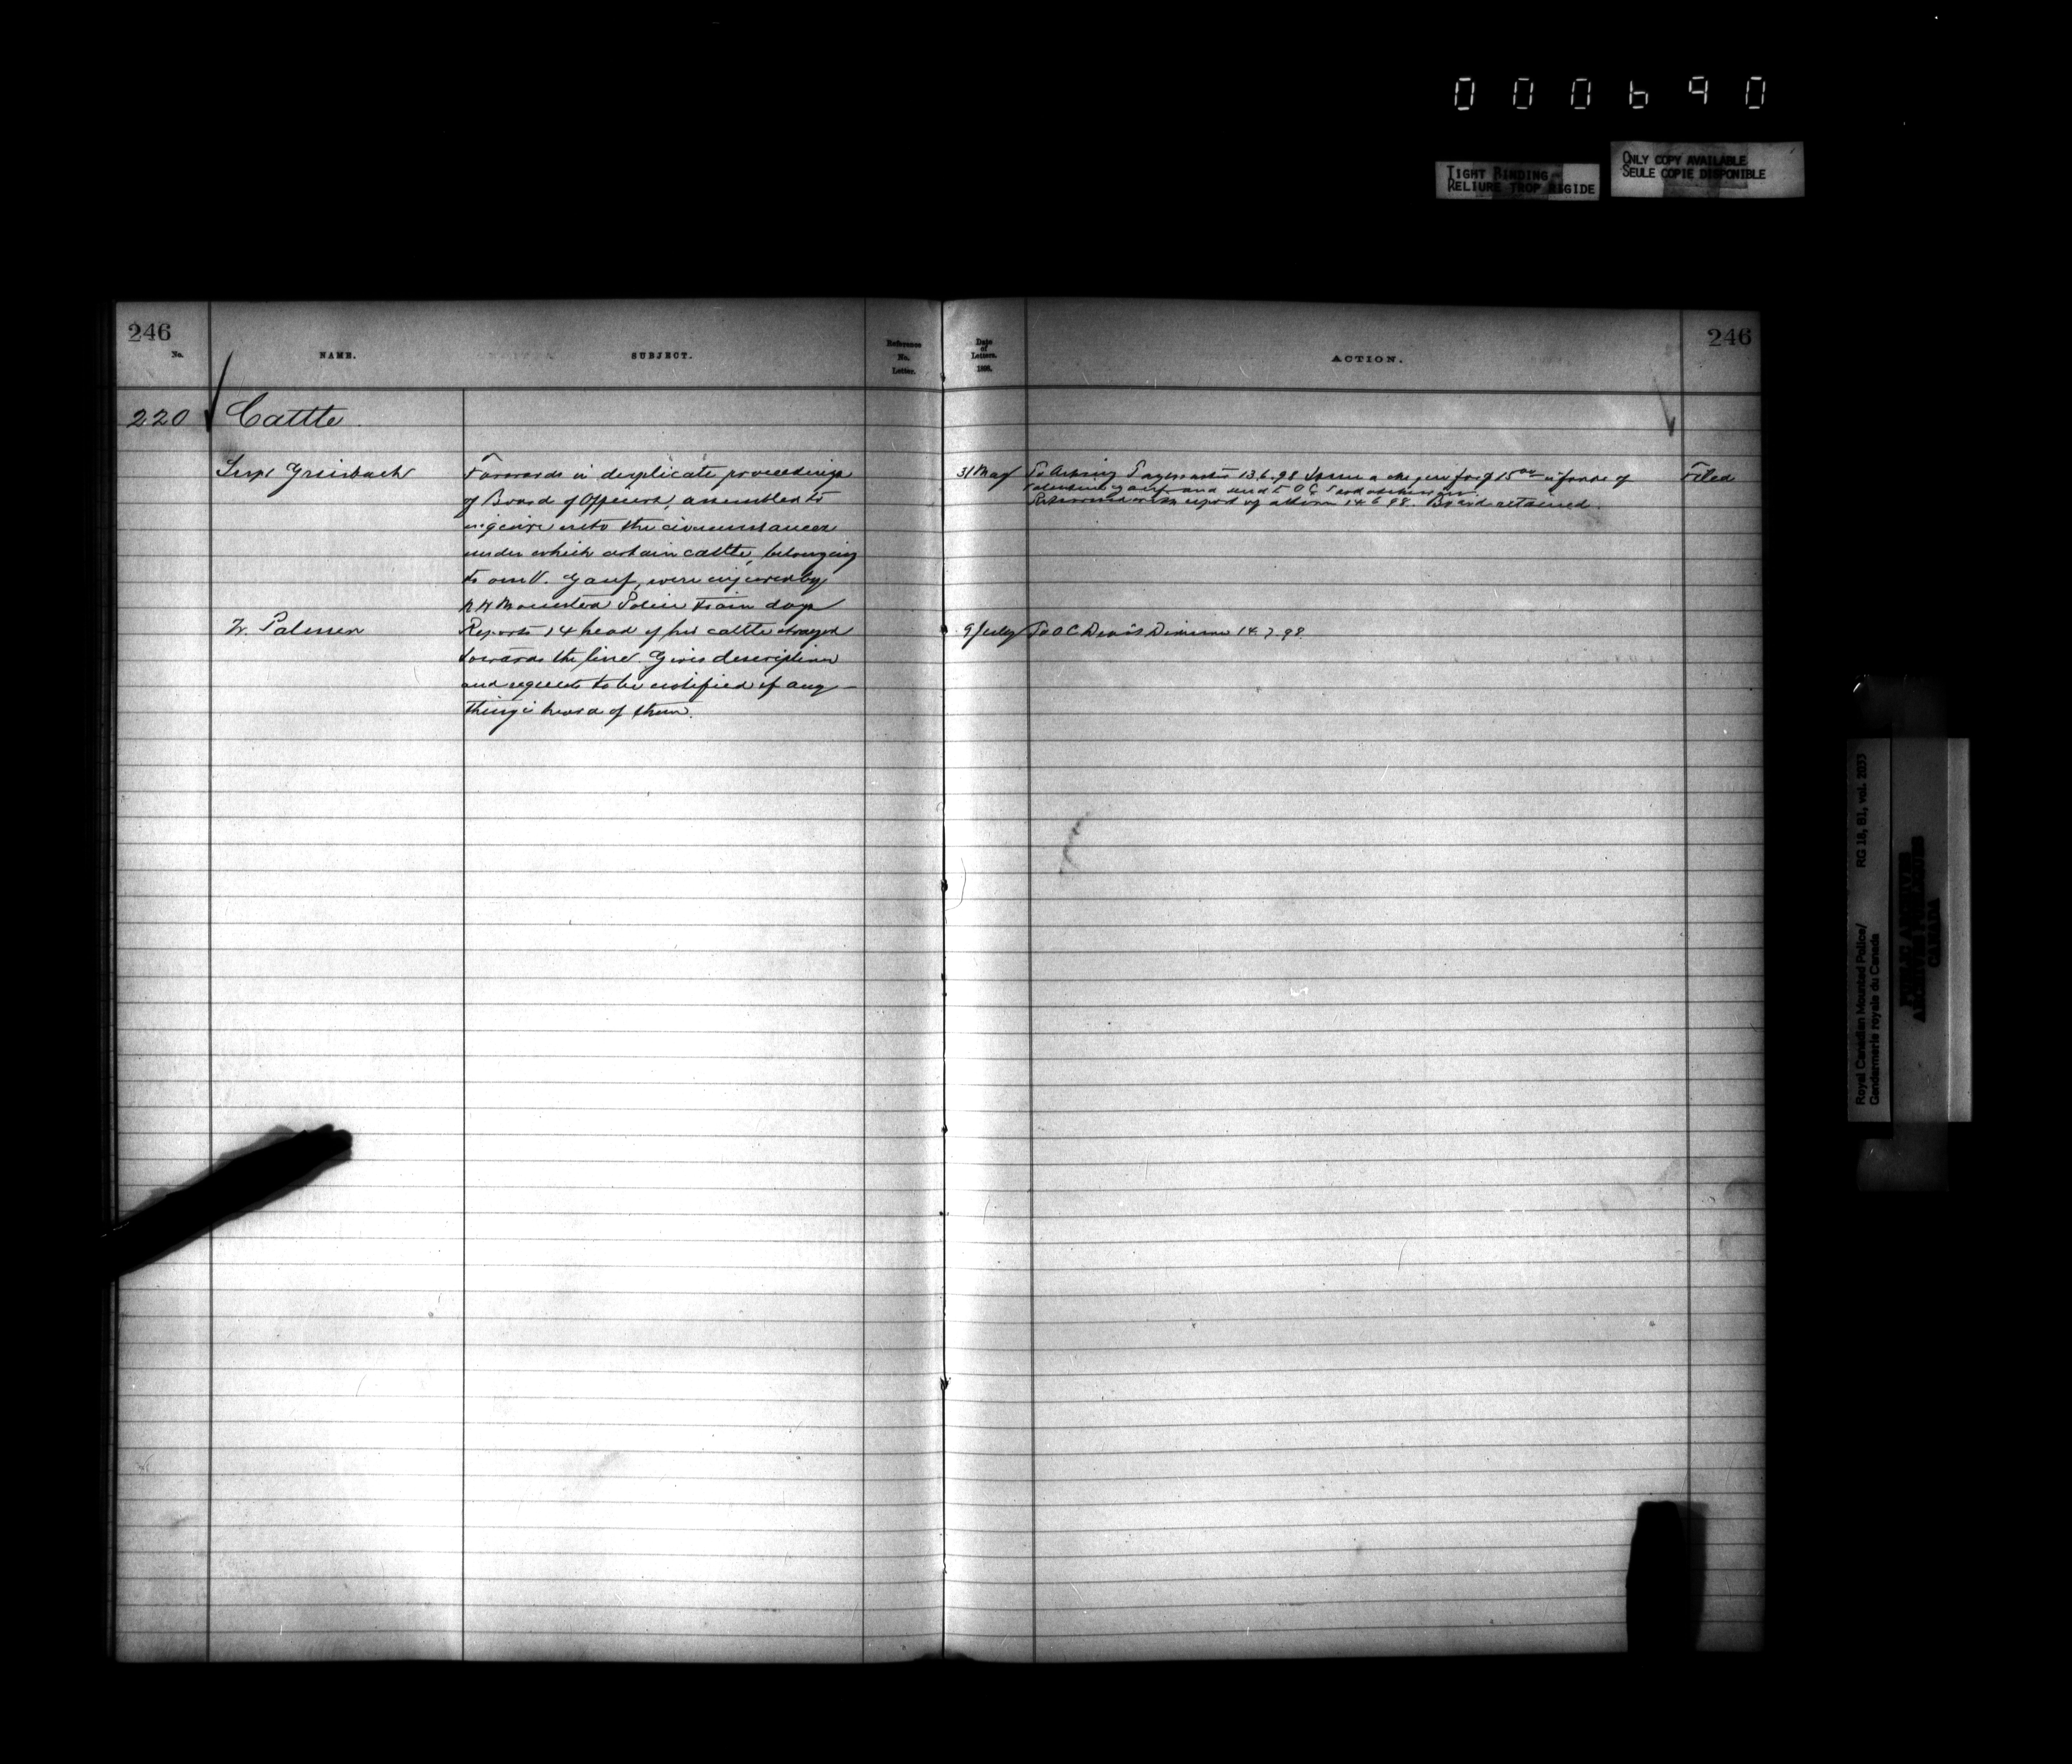 000690
TIGHT BINDING
RELIURE TROP RIGIDE
ONLY COPY AVAILABLE
SEULE COPIE DISPONIBLE
246
No.
NAME.
SUBJECT.
Reference
No.
Letter.
Date
of
Letters.
1898.
ACTION.
246
220 Cattle.
Supt Griesbach
Forwards in duplicate proceedings
of Board of Officers, assembled to
enquire into the circumstances
under which certain cattle, belonging
to one V. Gauf, were injured by
N W Mounted Police train dogs
31 May
To Acting Paymaster 13.6.98 Issue a cheque for $15 00 in favor of
Valentine Gauf and send to O C
Returned with report of action 14.6.98. Board retained.
Filed
W. Palmer
Reports 14 head of his cattle strayed
towards the line. Gives description
and requests to be notified if any-
thing is heard of them.
9 July
To O C Division 14.7.98.
Royal Canadian Mounted Police/
Gendarmerie royale du Canada
RG 18, B1, vol. 2033
PUBLIC ARCHIVES
ARCHIVES PUBLIQUES
CANADA